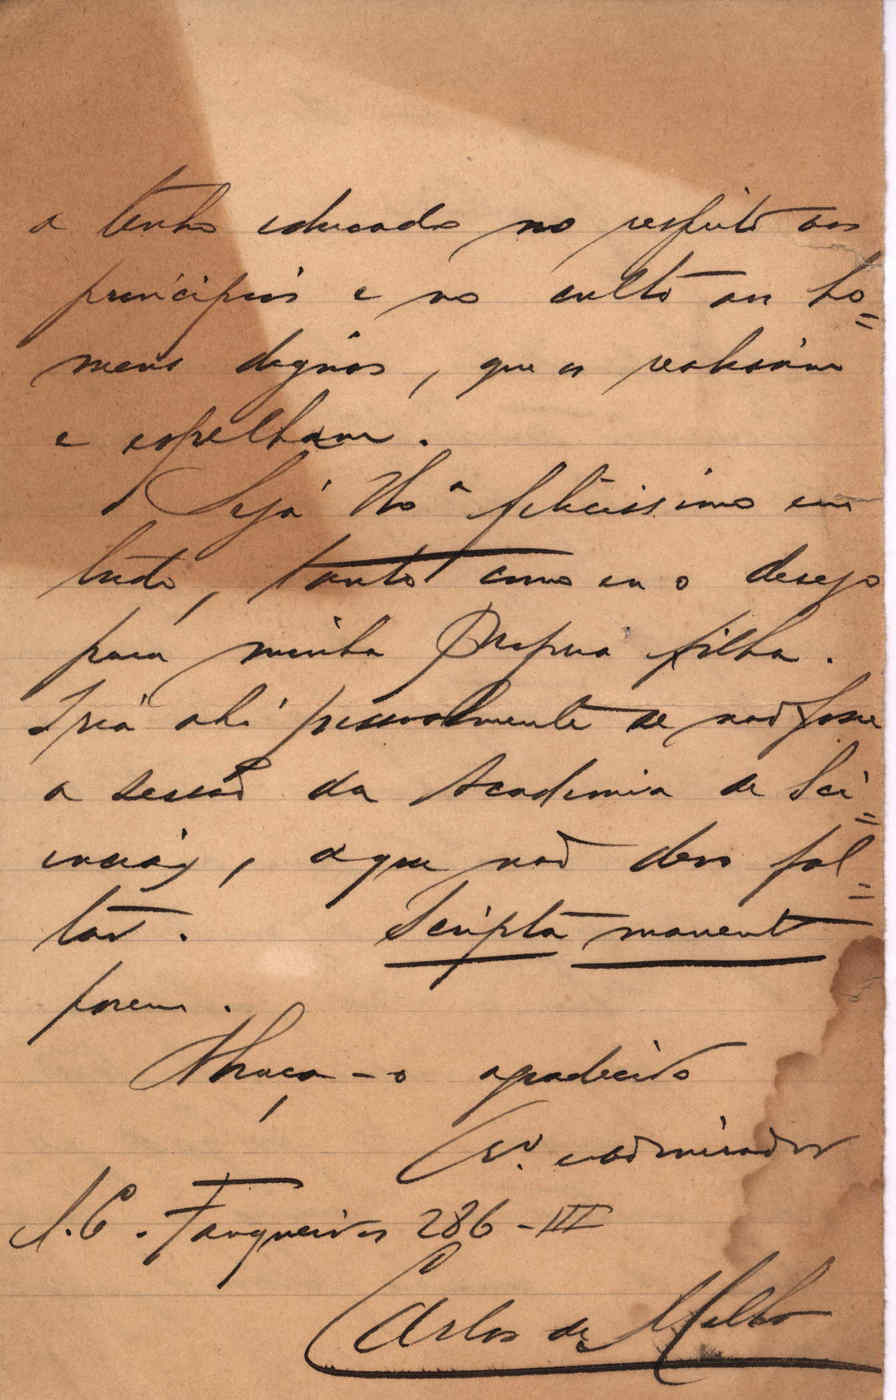 a tenho educado no respeito aos
principios e no culto aos ho=
mens dignos, que os realisam
e espelham.
Seja V. Ex.ª felicissimo em
tudo, tanto como eu o desejo
para minha propria filha.
Iria ahi pessoalmente se não fosse
a sessão da Academia de Sci=
encias, a que não devo fal=
tar. Scripta manent
porem.
Abraça-o agradecido
admirador
S.C. Fanqueiros 286-III
Carlos de Mello